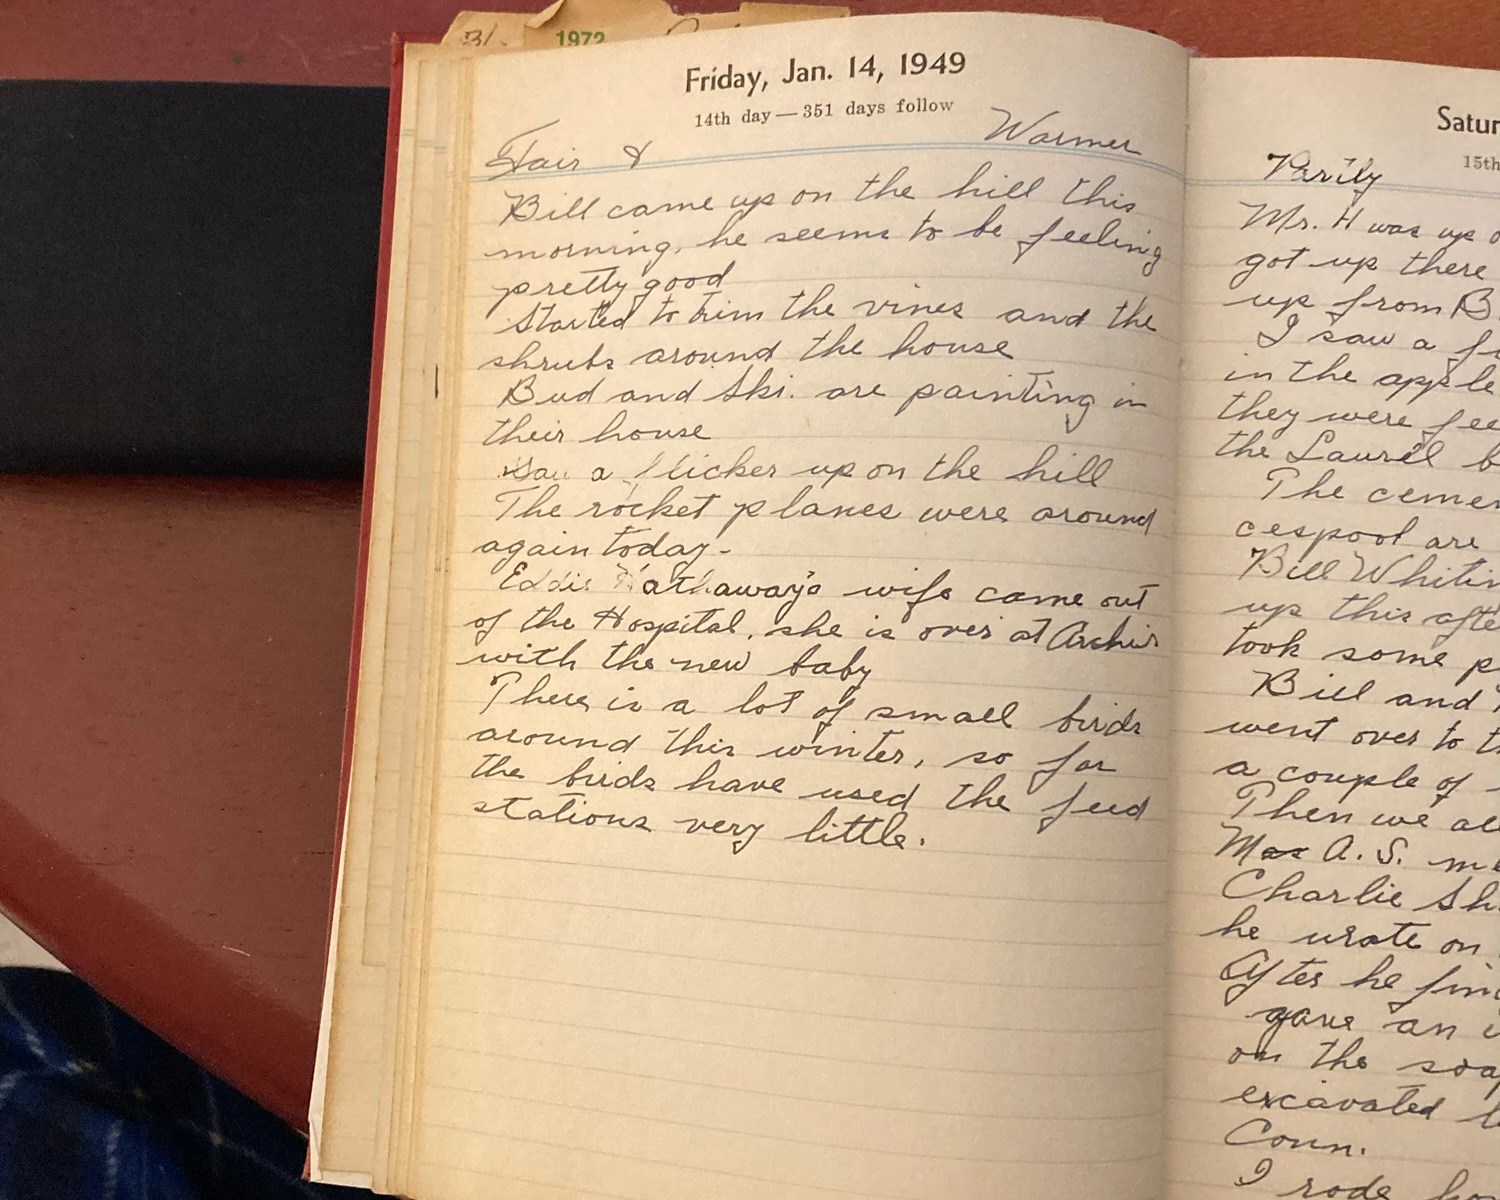 1972
Friday, Jan. 14, 1949
14th day — 351 days follow
Fair & Warmer
Bill came up on the hill this
morning, he seems to be feeling
pretty good
Started to trim the vines and the
shrubs around the house
Bud and Ski. are painting in
their house
Saw a flicker up on the hill
The rocket planes were around
again today -
Eddie Hathaway's wife came out
of the Hospital, she is over at Archie's
with the new baby
There is a lot of small birds
around this winter, so far
the birds have used the feed
stations very little.
Satur
15th
Partly
Mr. H was up
got up there
up from B
I saw a
in the apple
they were fee
the Laurel b
The cemen
cespool are
Bill Whitin
up this afte
took some p
Bill and
went over to t
a couple of
Then we al
A. S. me
Charlie Sh
he wrote on
After he fin
gave an
on the soap
excavated
Conn.
I rode